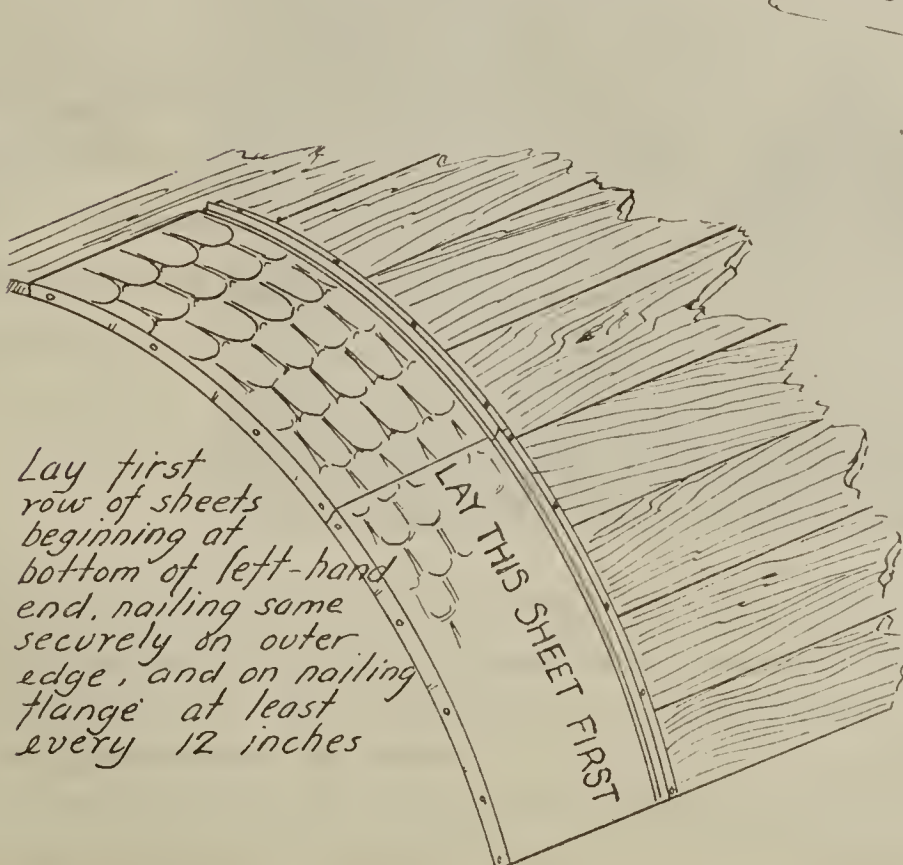 Lay first
row of sheets
beginning at
bottom of left-hand
end, nailing same
securely on outer
edge, and on nailing
flange at least
every 12 inches
LAY THIS SHEET FIRST